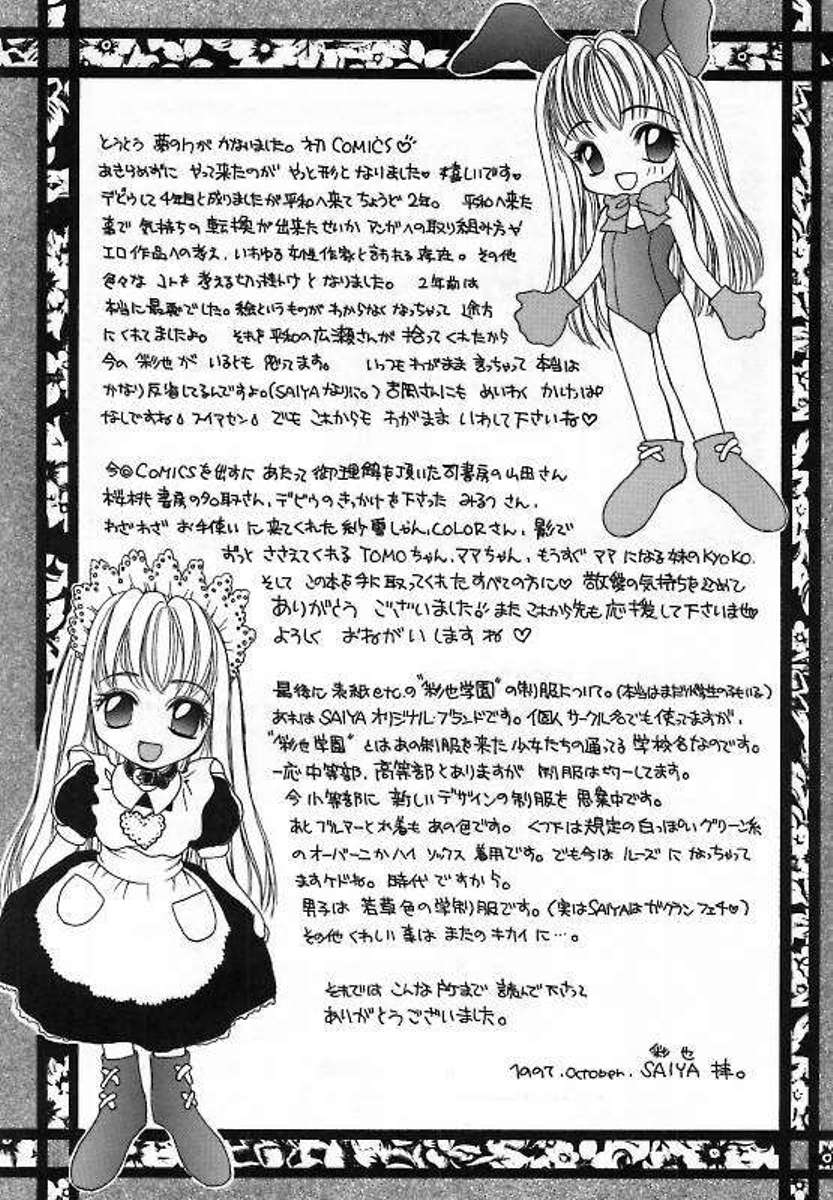 とうとう 夢の1つが かないました。初 COMICS♡
あきらめずに やって来たのが やっと形と なりました♡ 嬉しいです♡
デビゥして4年目と成りましたが平和へ来てちょうど2年。 平和へ来た
事で 気持ちの 転換が出来たせいか マンガへの取り組み方や
エロ作品への考え、いわゆる女性作家と言われる存在。その他
色々な コトを 考える切っ掛けと なりました。 2年前は
本当に最恥でした。絵というものが わからなく なっちゃって 途方
にくれてましたよ。 それを平和の広瀬さんが 拾ってくれたから
今の 彩也が いるとも 思ってます。 いつも わがまま 言っちゃって 本当は
かなり反省してるんですよ。(SAIYAなりに。) 吉岡さんにも めいわく かけっぱ
なしですね スイマセン でも これからも わがまま いわして下さいね♡
今回COMICSを出すに あたって 御理解を頂いた司書房の山田さん
桜桃書房の名取さん、デビゥのきっかけを下さった みるつ さん、
わざわざ お手伝い に来てくれた 紗雪しゃん、COLORさん、影で
ずっと ささえてくれる TOMOちゃん、ママちゃん、もうすぐ ママ になる 妹のKYOKO、
そして この本を手に取ってくれた すべての方に♡ 敬愛の気持ちを込めて
ありがとう ございました!! また これから先も 応援して下さいませ♡
よろしく おねがい します ね ♡
最後に 表紙etc.の "彩也学園" の制服について。(本当はまだ小学生の子もいる)
あれは SAIYA オリジナル・ブランドです。個人サークル名でも使ってますが、
"彩也学園" とは あの制服を来た 少女たちの通ってる 学校名なのです。
一応中等部、高等部とありますが 制服は均一してます。
今 小等部に 新しいデザインの制服を 思案中です。
あと ブルマーと水着も あの色です。 くつ下は規定の白っぽいグリーン系
の オーバーニかハイ ソックス 着用です。でも今は ルーズ に なっちゃって
ますケドね。 時代 ですから。
男子は 若草色の学制服です。(実はSAIYAは ガクラン フェチ♡)
その他 くわしい 事は またの キカイ に…。
それでは こんな 所まで 読んで下さって
ありがとうございました。
彩 也
1997. October. SAIYA 拝。